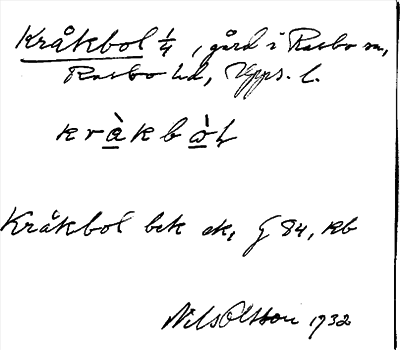 Kråkbol 1/4, gård i Rasbo sn,
Rasbo hd, Upps. l.
kràkbòl
Kråkbol bek ek, G 84, Rb
Nils Olsson 1932